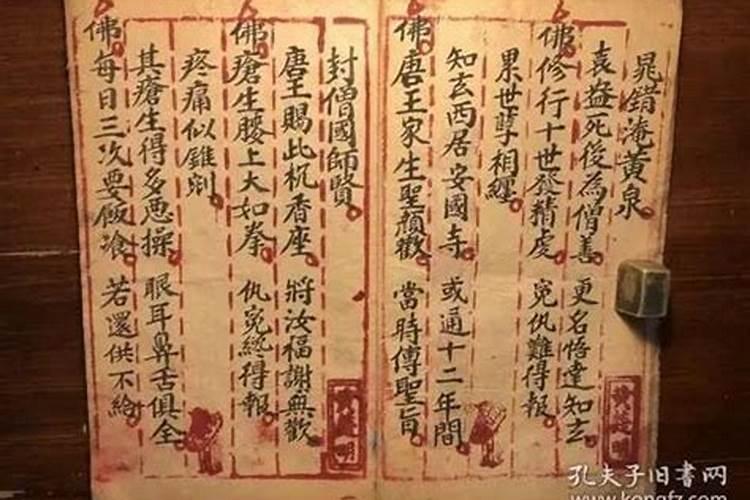 晁錯渰黃泉
袁盎死後為僧善 更名悟達知玄
佛修行十世發精虔 冤仇難得報
累世孽相纏
知玄西居安國寺 或通十二年間
佛唐王家生聖顏歡 當時傳聖旨
封僧國師賢
唐王賜此杌香座 將汝福謝無歡
佛瘡生腰上大如拳 仇冤終得報
疼痛似錐剜
其瘡生得多惡操 眼耳鼻舌俱全
佛每日三次要飯飡 若還供不給
孔夫子旧书网